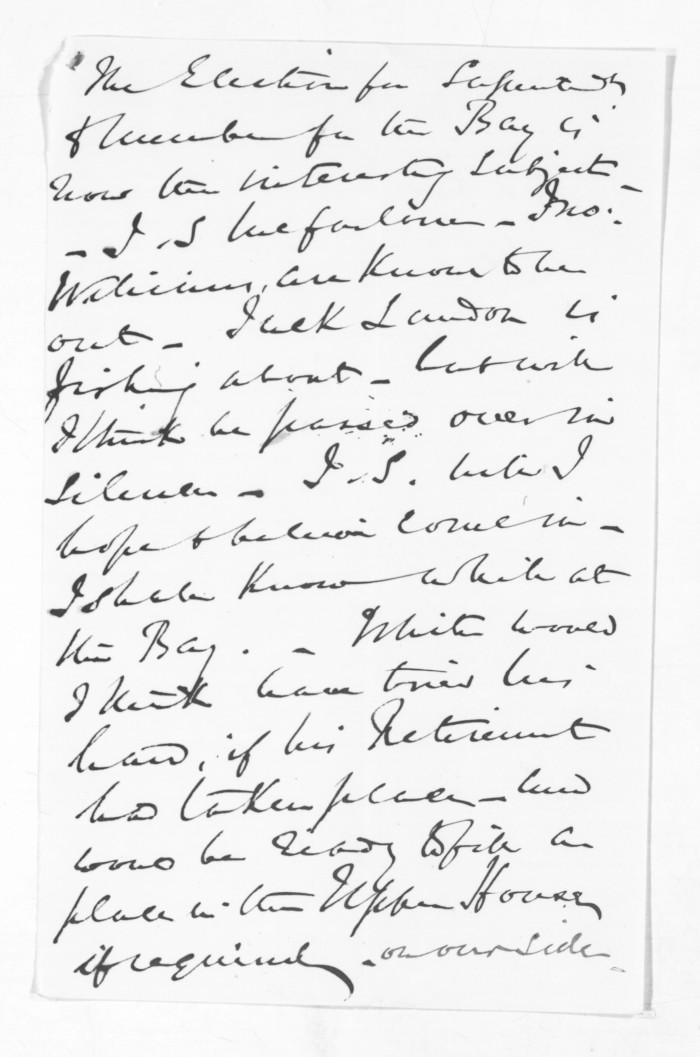 The Election for Superintendt
& Member for the Bay is
now the interesting subject -
- J. S. McFarlane - Jno:
Williams, are known to be
out - Jack London is
fishing about - but will
I think be passed over in
silence - J. S. will I
hope & believe come in -
I shall know while at
the Bay. - White would
I think have tried his
hand, if his Retirement
had taken place - and
would be ready to fill a
place in the Upper House
if required - on our side -